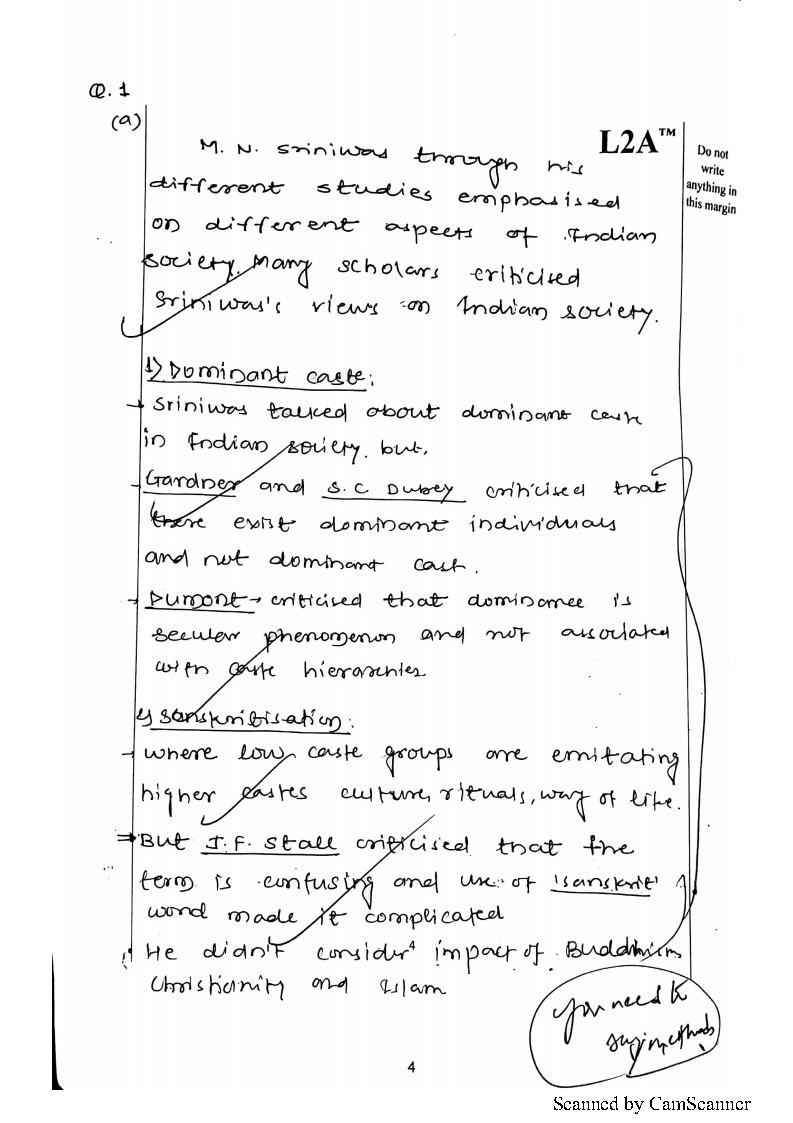 Q. 1
(a)
L2A™
Do not
write
anything in
this margin
M. N. Sriniwas through his
different studies emphasised
on different aspects of Indian
society. Many scholars criticised
Sriniwas's views on Indian society.
1) Dominant caste:
→ Sriniwas talked about dominant caste
in Indian society. but,
- Gardner and S. C Dubey criticised that
there exist dominant individuals
and not dominant caste.
→ Dumont → criticised that dominance is
secular phenomenon and not associated
with caste hierarchies
2) Sanskritisation:
→ where low caste groups are emitating
higher castes culture, rituals, way of life.
⇒ But J. F. Stall criticised that the
term is confusing and use of 'sanskrit'
word made it complicated
He didn't consider impact of Buddhism,
Christianity and Islam
You need to
4
Scanned by CamScanner